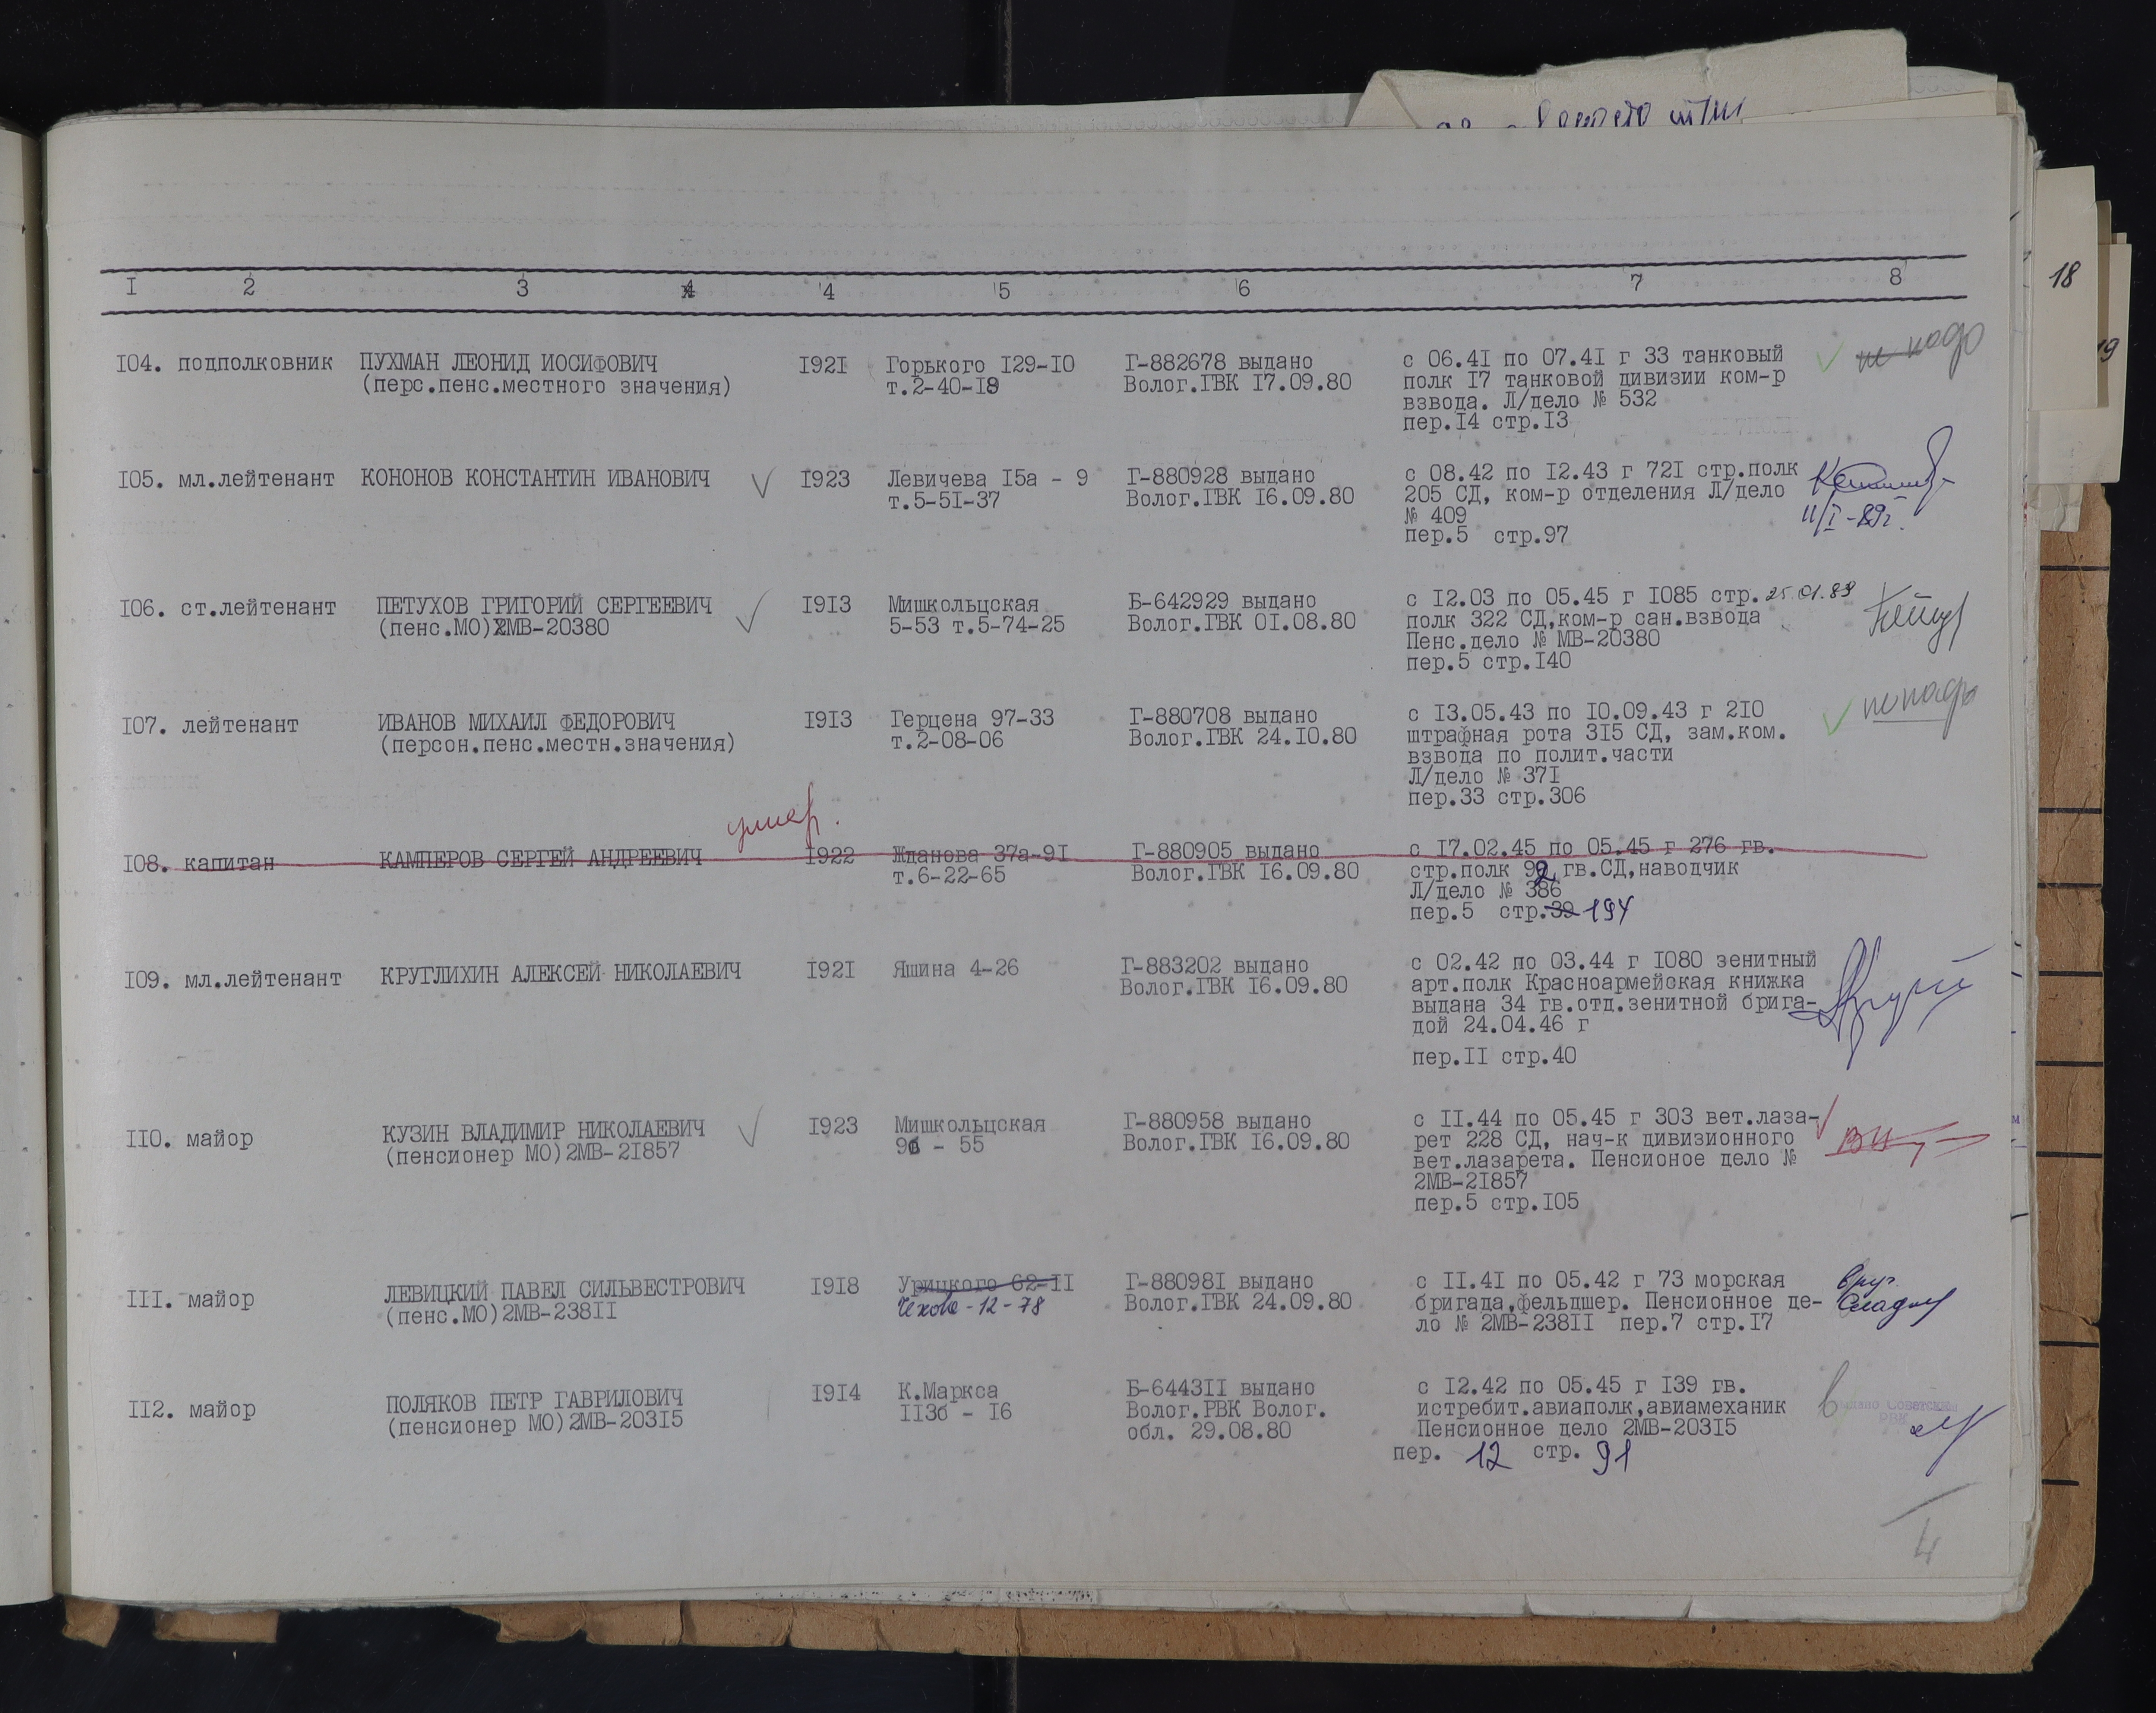 18
19
I 2 3 4 5 6 7 8
I04. подполковник ПУХМАН ЛЕОНИД ИОСИФОВИЧ I92I Горького I29-I0 Г-882678 выдано с 06.4I по 07.4I г 33 танковый не надо
(перс.пенс.местного значения) т.2-40-I8 Волог.ГВК I7.09.80 полк I7 танковой дивизии ком-р
взвода. Л/дело № 532
пер.I4 стр.I3
I05. мл.лейтенант КОНОНОВ КОНСТАНТИН ИВАНОВИЧ I923 Левичева I5а - 9 Г-880928 выдано с 08.42 по I2.43 г 72I стр.полк
т.5-5I-37 Волог.ГВК I6.09.80 205 СД, ком-р отделения Л/дело
№ 409 11/I-89г.
пер.5 стр.97
I06. ст.лейтенант ПЕТУХОВ ГРИГОРИЙ СЕРГЕЕВИЧ I9I3 Мишкольцская Б-642929 выдано с I2.03 по 05.45 г I085 стр. 25.01.89
(пенс.МО)2МВ-20380 5-53 т.5-74-25 Волог.ГВК 0I.08.80 полк 322 СД,ком-р сан.взвода
Пенс.дело № МВ-20380
пер.5 стр.I40
I07. лейтенант ИВАНОВ МИХАИЛ ФЕДОРОВИЧ I9I3 Герцена 97-33 Г-880708 выдано с I3.05.43 по I0.09.43 г 2I0 не надо
(персон.пенс.местн.значения) т.2-08-06 Волог.ГВК 24.I0.80 штрафная рота 3I5 СД, зам.ком.
взвода по полит.части
Л/дело № 37I
пер.33 стр.306
умер.
I08. капитан КАМПЕРОВ СЕРГЕЙ АНДРЕЕВИЧ I922 Жданова 37а-9I Г-880905 выдано с I7.02.45 по 05.45 г 276 гв.
т.6-22-65 Волог.ГВК I6.09.80 стр.полк 92 гв.СД,наводчик
Л/дело № 386
пер.5 стр.39 194
I09. мл.лейтенант КРУГЛИХИН АЛЕКСЕЙ НИКОЛАЕВИЧ I92I Яшина 4-26 Г-883202 выдано с 02.42 по 03.44 г I080 зенитный
Волог.ГВК I6.09.80 арт.полк Красноармейская книжка
выдана 34 гв.отд.зенитной брига-
дой 24.04.46 г
пер.II стр.40
II0. майор КУЗИН ВЛАДИМИР НИКОЛАЕВИЧ I923 Мишкольцская Г-880958 выдано с II.44 по 05.45 г 303 вет.лаза-
(пенсионер МО)2МВ-2I857 9б - 55 Волог.ГВК I6.09.80 рет 228 СД, нач-к дивизионного
вет.лазарета. Пенсионое дело №
2МВ-2I857
пер.5 стр.I05
III. майор ЛЕВИЦКИЙ ПАВЕЛ СИЛЬВЕСТРОВИЧ I9I8 Урицкого 62-II Г-88098I выдано с II.4I по 05.42 г 73 морская
(пенс.МО)2МВ-238II Чехова-12-78 Волог.ГВК 24.09.80 бригада,фельдшер. Пенсионное де-
ло № 2МВ-238II пер.7 стр.I7
II2. майор ПОЛЯКОВ ПЕТР ГАВРИЛОВИЧ I9I4 К.Маркса Б-6443II выдано с I2.42 по 05.45 г I39 гв.
(пенсионер МО)2МВ-203I5 II3б - I6 Волог.РВК Волог. истребит.авиаполк,авиамеханик
обл. 29.08.80 Пенсионное дело 2МВ-203I5
пер. 12 стр. 91
4